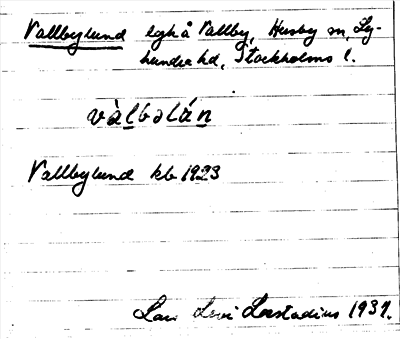 Vallbylund lgh å Vallby, Husby sn, Ly-
hundra hd, Stockholms l.
vàlbəlán
Vallbylund kb 1923
Lars Levi Læstadius 1937.